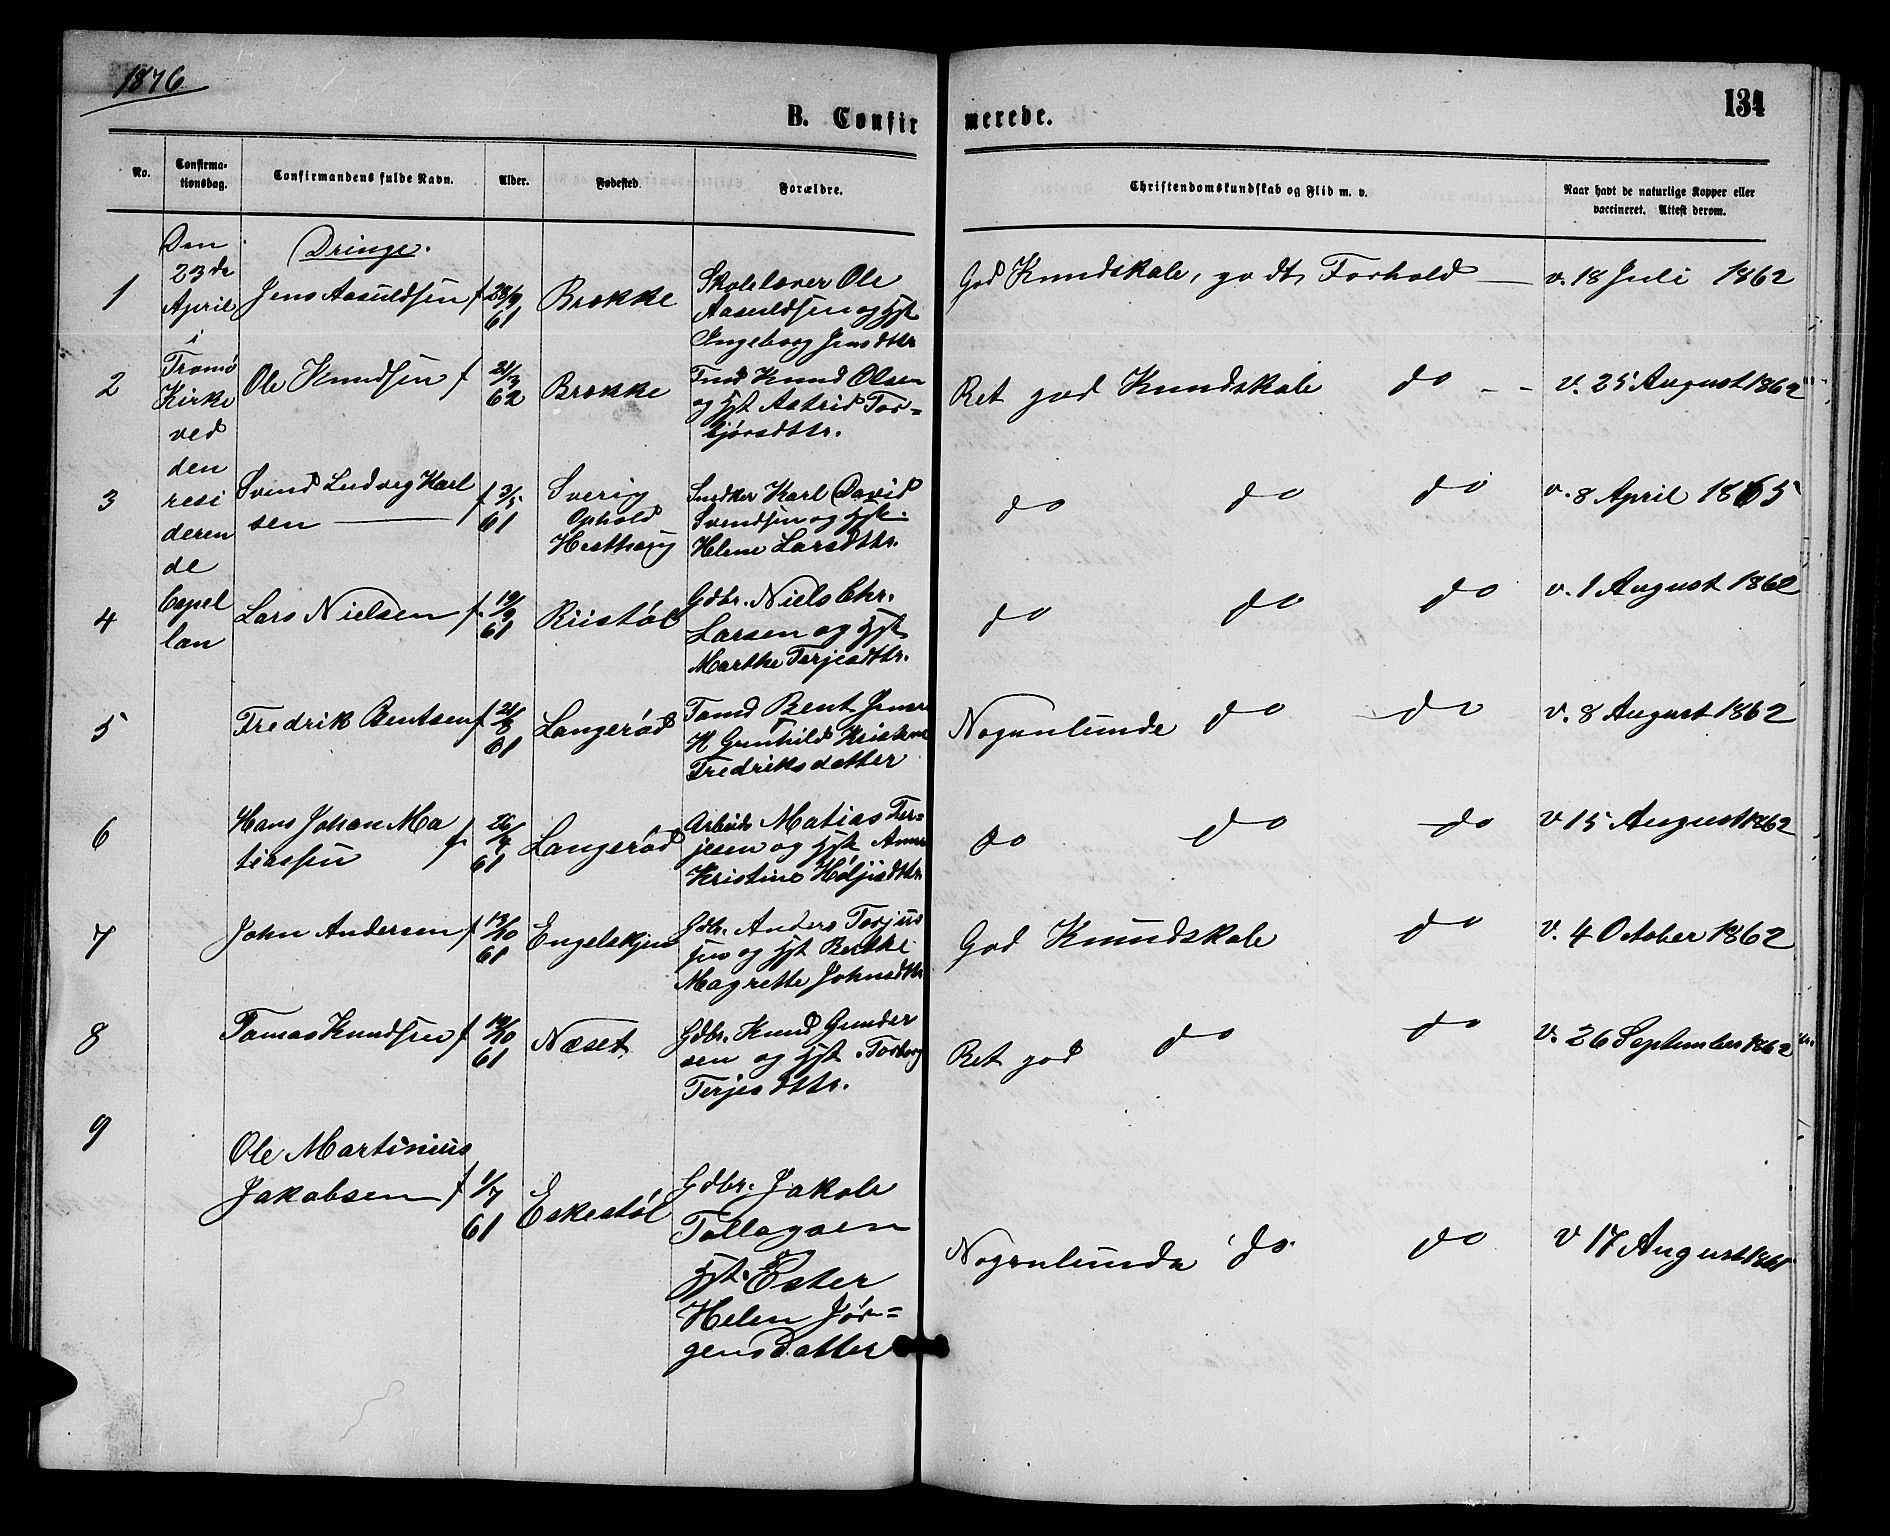 1876
B. Confirmerede.
134
No.
Confirma-
tionsdag.
Confirmandens fulde Navn.
Alder.
Fødested.
Forældre.
Christendomskundskab og Flid m. v.
Naar havt de naturlige Kopper eller
vaccineret. Attest derom.
Den
23de
April
i
Tromø
Kirke
ved
den
resi
deren
de
Capel
lan
Drenge.
1
Jens Aasuldsen f
28/9
61
Brække
Skolelærer Ole
Aasuldsen og Hst
Ingeborg Jensdttr
God Kundskab, godt Forhold —
v. 18 Juli 1862
2
Ole Knudsen f
21/3
62
Brække
Tmd Knud Olsen
og Hst Astrid Tor=
bjørsdttr.
Ret god Kundskab do - -
v. 25 August 1862
3
Svend Ludvig Karl
sen — f
3/5
61
Sverig
Ophold
Snedker Karl David
Svendsen og Hst.
Helene Larsdttr.
do do do
v. 8 April 1865
4
Lars Nielsen f.
19/9
61
Riistøl
Gdbr. Niels Chr.
Larsen og Hst
Marthe Terjesdttr.
do do do
v. 1 August 1862
5
Fredrik Bentsen f
21/8
61
Langerød
Tømd Bent Jensen
H Gunhild Kristine
Fredriksdatter
Nogenlunde do do
v. 8 August 1862
6
Hans Johan Ma
tiassen f.
61
Langerød
Arbeids Matias Ter=
jesen og Hst Anne
Kristine
do do do
v 15 August 1862
7
John Andersen f
13/10
61
Engelskjøn
Gdbr. Anders Torjus
sen og Hst Berthe
Magrette Johnsdttr
God Kundskab do
v. 4 October 1862
8
Tomas Knudsen f
19/10
61
Næset
Gdbr. Knud Gunder
sen og Hst. Torborg
Terjesdttr.
Ret god do do
v. 26 September 1862
9
Ole Martinius
Jakobsen f
1/7
61
Eskestøl
Gdbr. Jakob
Tollagsen
Hst. Ester
Helen Jør=
gensdatter
Nogenlunde do. do
v 17 August 1861